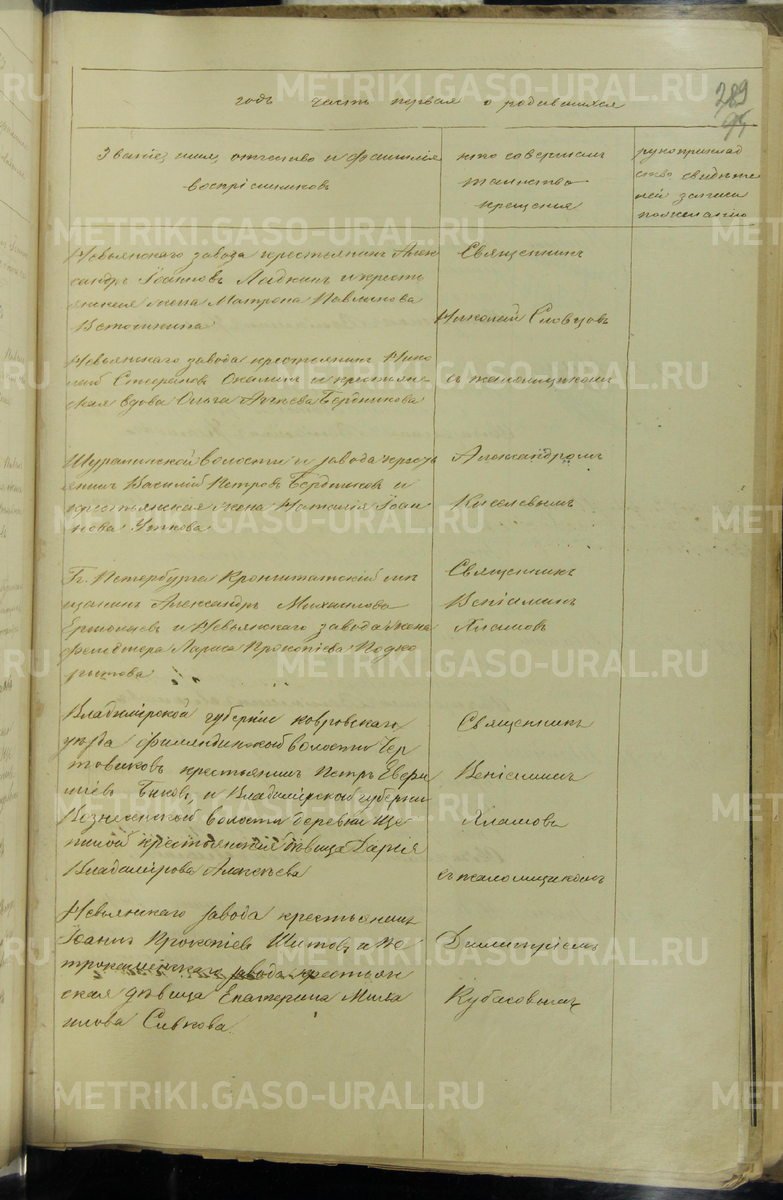 289
95
годъ часть первая о родившихся
Званіе, имя, отчество и фамилія
воспріемниковъ
кто совершалъ
таинство
крещенія
рукоприклад
ство свидѣте
лей записи
по желанію
Невьянскаго завода крестьянинъ Алек
сандръ Іоанновъ Ладкинъ и кресть
янская жена Матрона Павлинова
Священникъ
Николай Словцовъ
Невьянскаго завода крестьянинъ Нико
лай Стефановъ и крестьян
ская вдова Ольга Бердникова
съ псаломщикомъ
Шуралинской волости и завода кресть
янинъ Василій Петровъ Бердниковъ и
крестьянская жена Наталія Іоан
нова
Александромъ
Киселевымъ
Г. Петербурга Кронштатскій мѣ
щанинъ Александръ Михаилова
и Невьянскаго завода жена
фельдшера Лариса Прокопіева Подко
рытова
Священникъ
Веніаминъ
Аламовъ
Владимірской губерніи Ковровскаго
уѣзда Филяндинской волости Чер
товиковъ крестьянинъ Петръ
Быковъ, и Владимірской губерніи
Вознесенской волости деревни Ще
тиной крестьянская дѣвица Дарія
Владимірова Алексѣева
Священникъ
Веніаминъ
Аламовъ
съ псаломщикомъ
Невьянскаго завода крестьянинъ
Іоаннъ Прокопіевъ Шитовъ и Пе
трокаменскаго завода крестьян
ская дѣвица Екатерина Миха
илова Сивкова.
Димитріемъ
Кубасовымъ
METRIKI.GASO-URAL.RU